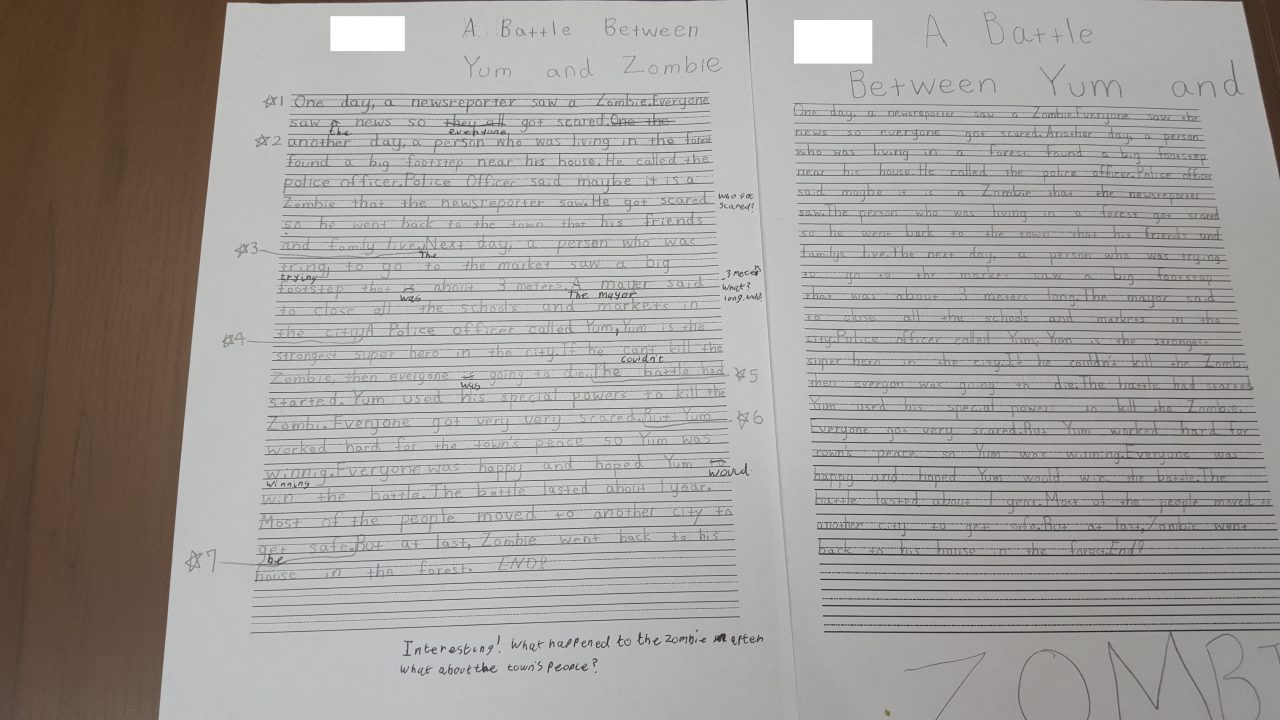 A Battle Between
Yum and Zombie
☆1 One day, a newsreporter saw a Zombie.Everyone
saw a news so they all got scared.One the
the everyone
☆2 another day, a person who was living in the forest
found a big footstep near his house.He called the
police officer.Police Officer said maybe it is a
Zombie that the newsreporter saw.He got scared
who got scared?
so he went back to the town that his friends
☆3 and family live.Next day, a person who was
The
tring, to go to the market saw a big
trying
footstep that is about 3 meters.A mayor said
was The mayor
3 meters what? long, wide
to close all the schools and markets in
☆4 the city.A Police officer called Yum,Yum is the
strongest super hero in the city.If he can't kill the
couldn't
Zombie, then everyone is going to die.The battle had ☆5
was
started. Yum used his special powers to kill the
Zombi.Everyone got very very scared.But Yum ☆6
worked hard for the town's peace so Yum was
winnig.Everyone was happy and hoped Yum to
winning would
win the battle.The battle lasted about 1 year.
Most of the people moved to another city to
get safe.But at last, Zombie went back to his
☆7 be
house in the forest. END?
Interesting! What happened to the zombie after
what about the town's people?
A Battle
Between Yum and
One day, a newsreporter saw a Zombie.Everyone saw the
news so everyone got scared.Another day, a person
who was living in a forest found a big footstep
near his house.He called the police officer.Police officer
said maybe it is a Zombie that the newsreporter
saw.The person who was living in a forest got scared
so he went back to the town that his friends and
familys live.The next day, a person who was trying
to go to the market saw a big footstep
that was about 3 meters long.The mayor said
to close all the schools and markets in the
city.Police officer called Yum, Yum is the strongest
super hero in the city.If he couldn't kill the Zombi,
then everyon was going to die.The battle had started
Yum used his special powers to kill the Zombie.
Everyone got very scared.But Yum worked hard for
town's peace so Yum was winning.Everyone was
happy and hoped Yum would win the battle.The
battle lasted about 1 year.Most of the people moved to
another city to get safe.But at last,Zombie went
back to his house in the forest.End?
ZOMBI